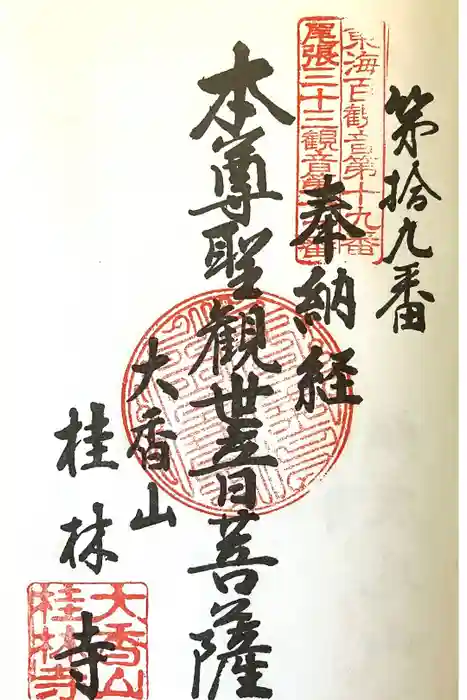 第拾九番
東海百観音第十九番
尾張三十三観音第十九番
奉納経
本尊聖観世音菩薩
大香山
桂林寺
大香山
桂林寺